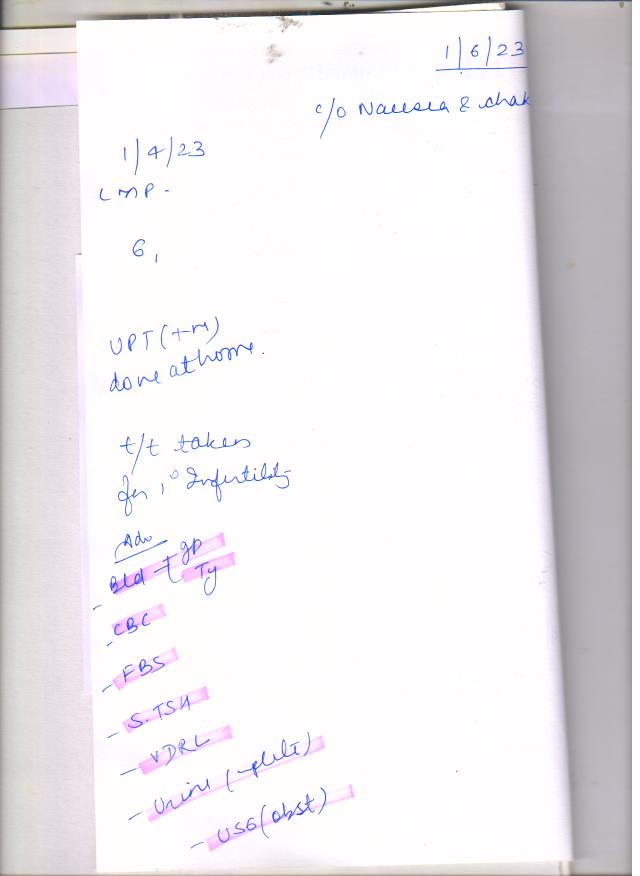 1/6/23
c/o Nausea & chak
1/4/23
LMP -
G1
UPT (+ve)
done at home.
t/t taken
for 1° Infertility
Adv
- Bld gp
Ty
- CBC
- FBS
- S.TSH
- VDRL
- Urine (
- USG (obst)